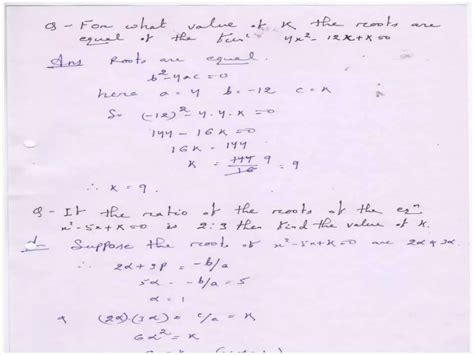 Q - For what value of K the roots are
equal of the Eqn 4x² - 12x + K = 0
Ans Roots are equal.
b² - 4ac = 0
here a = 4 b = -12 c = K
So (-12)² - 4.4.K = 0
144 - 16K = 0
16K = 144
K = 144/16 9 = 9
∴ K = 9.
Q - If the ratio of the roots of the eqn
x² - 5x + K = 0 is 2:3 then find the value of K.
Suppose the roots of x² - 5x + K = 0 are 2α & 3α.
∴ 2α + 3β = -b/a
5α = -b/a = 5
α = 1
& (2α)(3α) = c/a = K
6α² = K